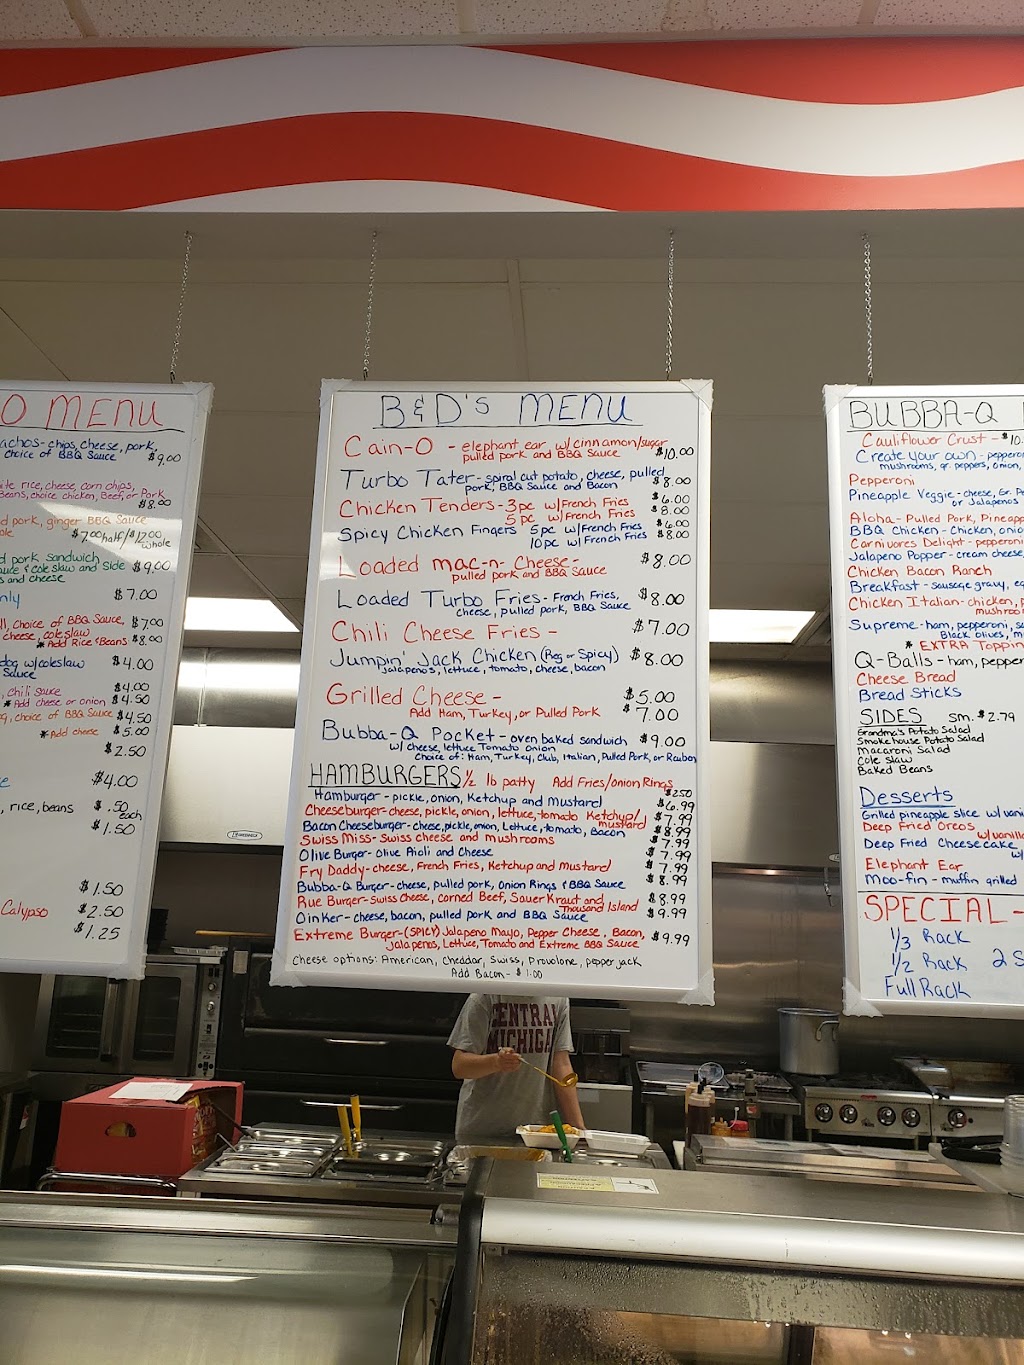 O MENU
achos - chips, cheese, pork,
choice of BBQ Sauce $9.00
ite rice, cheese, corn chips,
Beans, choice chicken, Beef, or Pork
$8.00
d pork, ginger BBQ Sauce
ole $7.00 half/$12.00 whole
d pork sandwich
auce & cole slaw and side $9.00
s and cheese
nly $7.00
ll, choice of BBQ Sauce, $7.00
cheese, coleslaw
*Add Rice & Beans $8.00
dog w/coleslaw $4.00
Sauce
, chili sauce $4.00
*Add cheese or onion $4.50
g, choice of BBQ Sauce $4.50
*Add cheese $5.00
$2.50
$4.00
, rice, beans $.50 each
$1.50
$1.50
Calypso $2.50
$1.25
B&D's MENU
Cain-O - elephant ear w/cinnamon/sugar
pulled pork and BBQ Sauce $10.00
Turbo Tater - spiral cut potato, cheese, pulled
pork, BBQ Sauce and Bacon $8.00
Chicken Tenders - 3pc w/French Fries $6.00
5pc w/French Fries $8.00
Spicy Chicken Fingers 5pc w/French Fries $6.00
10pc w/French Fries $8.00
Loaded mac-n-Cheese - $8.00
pulled pork and BBQ Sauce
Loaded Turbo Fries - French Fries, $8.00
cheese, pulled pork, BBQ Sauce
Chili Cheese Fries - $7.00
Jumpin' Jack Chicken (Reg or Spicy) $8.00
jalapenos, lettuce, tomato, cheese, bacon
Grilled Cheese - $5.00
Add Ham, Turkey, or Pulled Pork $7.00
Bubba-Q Pocket - oven baked sandwich $9.00
w/ cheese, lettuce Tomato onion
choice of: Ham, Turkey, Club, Italian, Pulled Pork, or Reuben
HAMBURGERS 1/2 lb patty Add Fries/onion Rings
$2.50
Hamburger - pickle, onion, Ketchup and Mustard $6.99
Cheeseburger - cheese, pickle, onion, lettuce, tomato Ketchup/
mustard $7.99
Bacon Cheeseburger - cheese, pickle, onion, Lettuce, tomato, Bacon $8.99
Swiss Miss - Swiss cheese and mushrooms $7.99
Olive Burger - Olive Aioli and Cheese $7.99
Fry Daddy - cheese, French Fries, Ketchup and Mustard $7.99
Bubba-Q Burger - cheese, pulled pork, Onion Rings & BBQ Sauce $8.99
Rue Burger - Swiss cheese, corned Beef, Sauer Kraut and
Thousand Island $8.99
Oinker - cheese, bacon, pulled pork and BBQ Sauce $9.99
Extreme Burger - (SPICY) Jalapeno Mayo, Pepper Cheese, Bacon, $9.99
Jalapenos, Lettuce, Tomato and Extreme BBQ Sauce
Cheese options: American, Cheddar, Swiss, Provolone, pepper jack
Add Bacon - $1.00
BUBBA-Q
Cauliflower Crust - $10.
Create your own - pepperon
mushrooms, gr. peppers, onion,
Pepperoni
Pineapple Veggie - cheese, Gr. Pe
or Jalapenos
Aloha - Pulled Pork, Pineapp
BBQ Chicken - Chicken, onio
Carnivores Delight - pepperoni
Jalapeno Popper - cream cheese,
Chicken Bacon Ranch
Breakfast - sausage gravy, eg
Chicken Italian - chicken, p
mushroo
Supreme - ham, pepperoni, sa
Black olives, m
* EXTRA Toppin
Q-Balls - ham, pepper
Cheese Bread
Bread Sticks
SIDES sm. $2.79
Grandma's Potato Salad
Smokehouse Potato Salad
Macaroni Salad
Cole Slaw
Baked Beans
Desserts
Grilled pineapple slice w/vani
Deep Fried Oreos
w/vanilla
Deep Fried Cheesecake
w/
Elephant Ear
Moo-fin - muffin grilled
SPECIAL -
1/3 Rack
1/2 Rack 2 S
Full Rack
CENTRAL
MICHIGA